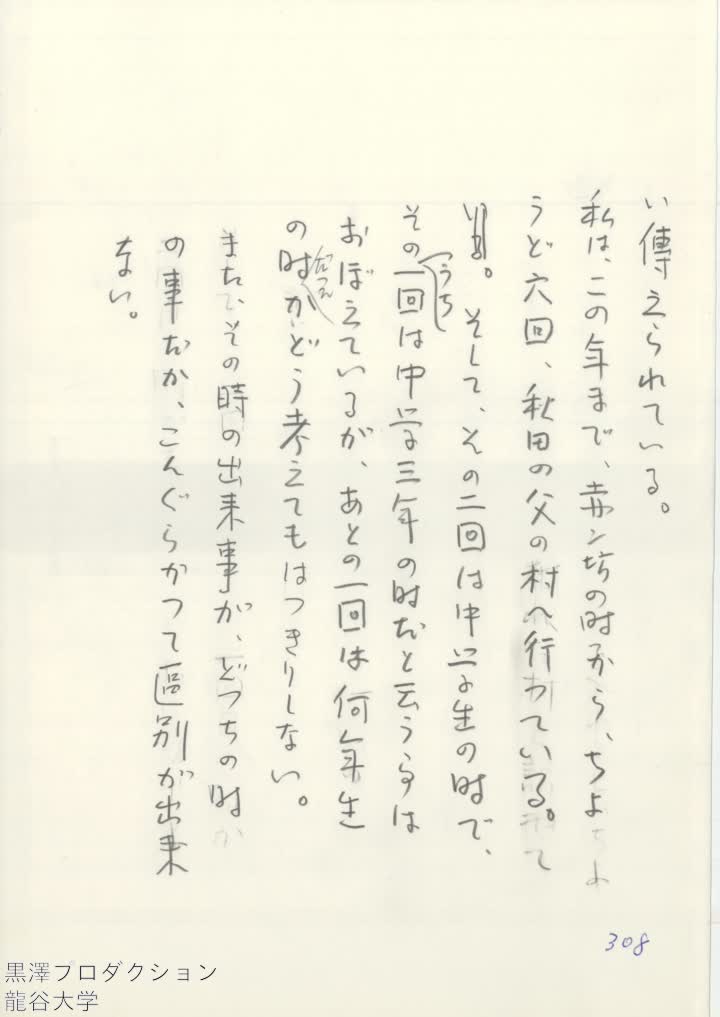 い傳えられている。
私は、この年まで、赤ン坊の時から、ちよ
うど六回、秋田の父の村へ行っている。
そして、その二回は中学生の時で、
そのうち一回は中学三年の時だと云う事は
おぼえているが、あとの一回は何年生
の時か、どう考えてもはつきりしない。
また、その時の出来事が、どつちの時
の事だか、こんぐらかつて区別が出来
ない。
308
黒澤プロダクション
龍谷大学